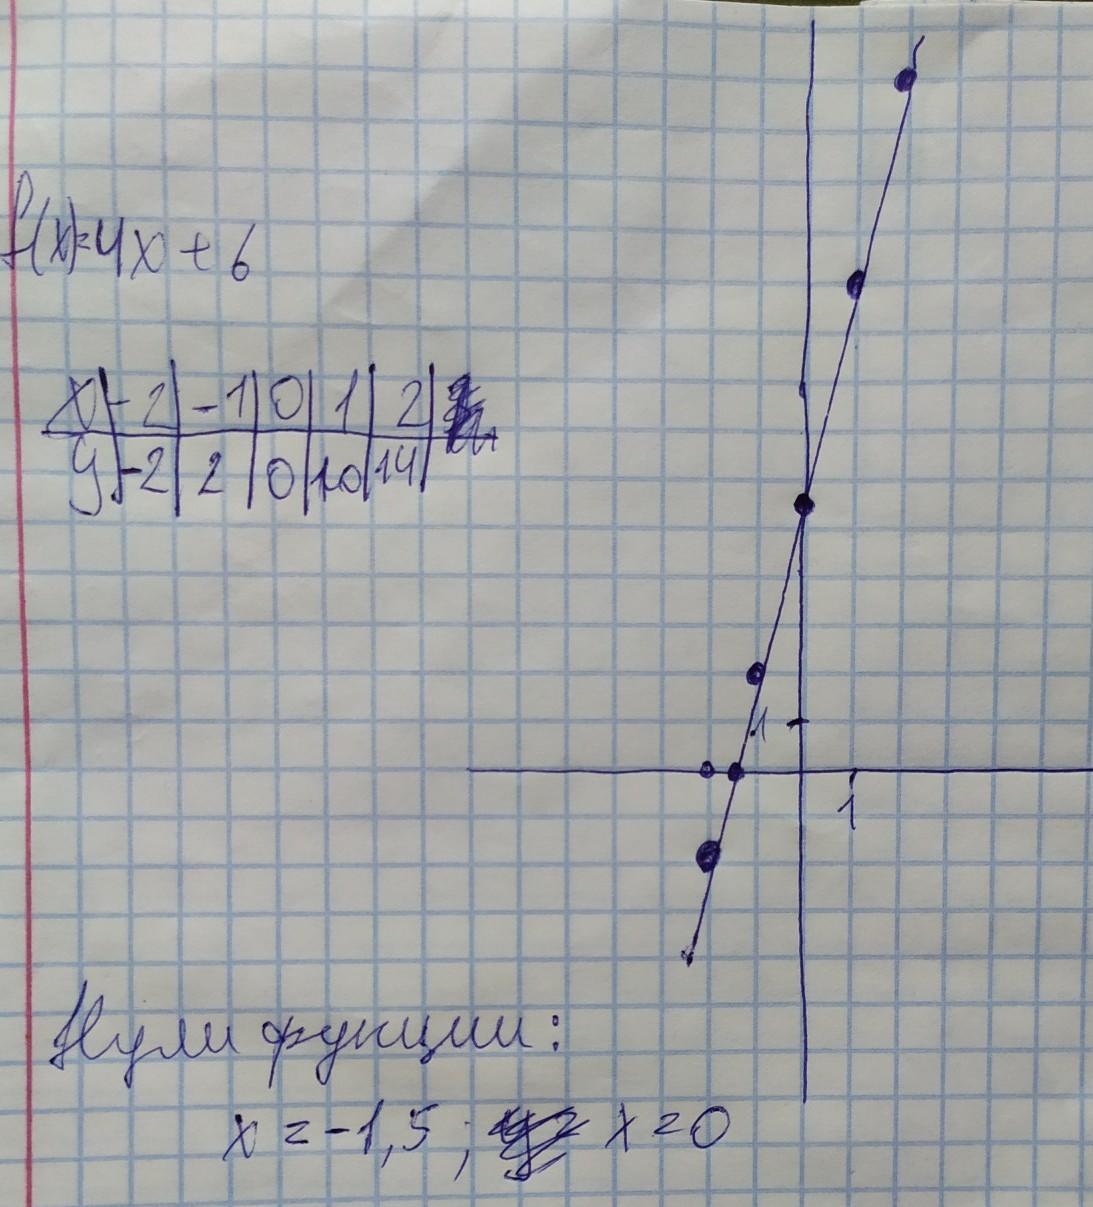 f(x)=4x+6
x|-2|-1|0|1|2|
y|-2|2|0|10|14|
1
1
Нули функции:
x=-1,5; x=0